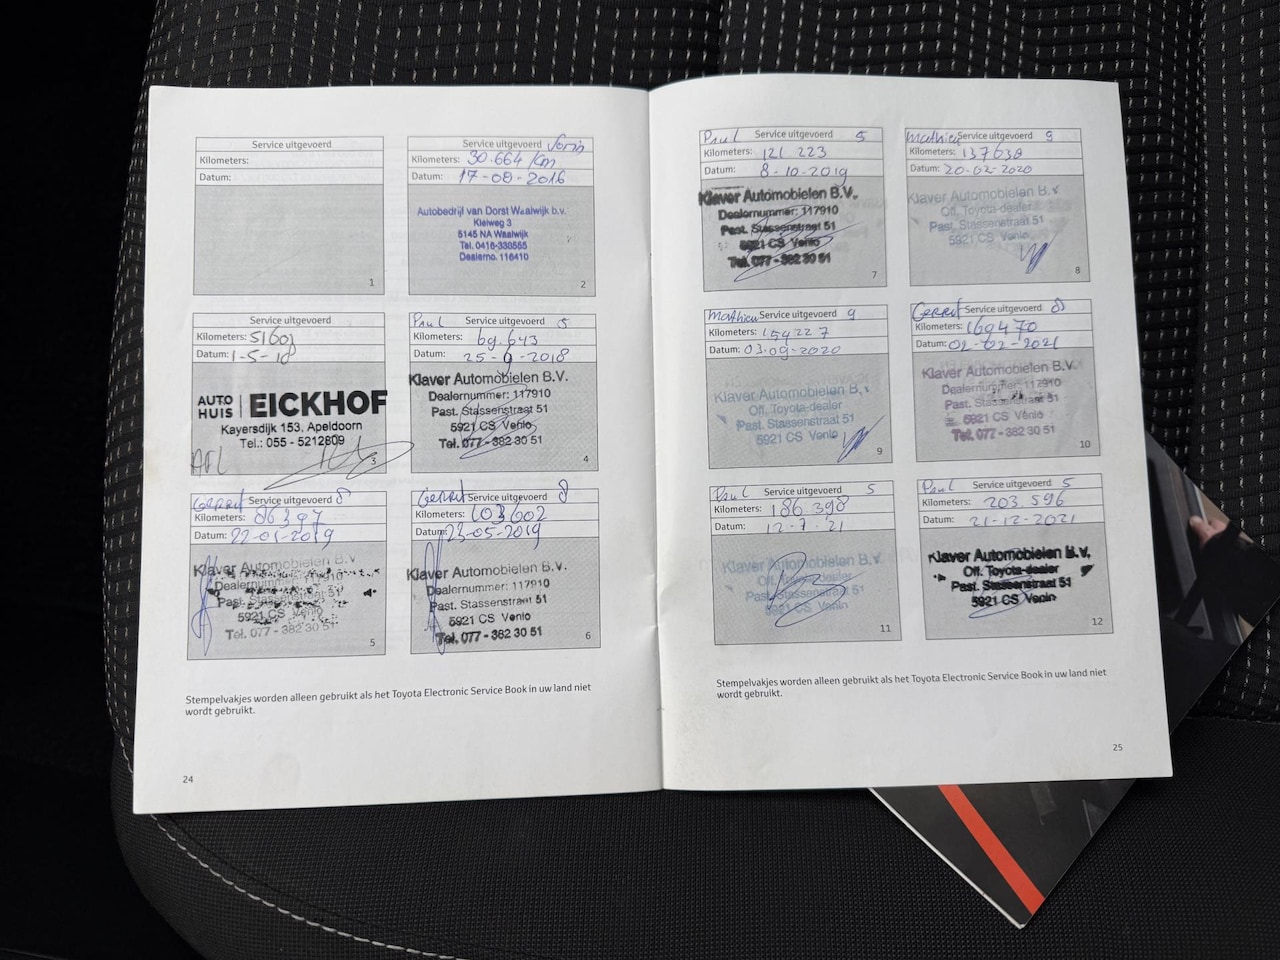 Service uitgevoerd
Kilometers:
Datum:
1
Service uitgevoerd
Kilometers: 30.664 km
Datum: 17-08-2016
Autobedrijf van Dorst Waalwijk b.v.
Kleiweg 3
5145 NA Waalwijk
Tel. 0416-338565
Dealerno. 116410
2
Service uitgevoerd
Kilometers: 51601
Datum: 1-5-18
AUTO HUIS | EICKHOF
Kayersdijk 153, Apeldoorn
Tel.: 055 - 5212809
3
Paul Service uitgevoerd 5
Kilometers: 69.643
Datum: 25-9-2018
Klaver Automobielen B.V.
Dealernummer: 117910
Past. Stassenstraat 51
5921 CS Venlo
Tel. 077 - 382 30 51
4
Gerrit Service uitgevoerd 8
Kilometers: 86397
Datum: 22-01-2019
Klaver Automobielen B.V.
Dealernummer: 117910
Past. Stassenstraat 51
5921 CS Venlo
Tel. 077 - 382 30 51
5
Gerrit Service uitgevoerd 8
Kilometers: 103602
Datum: 23-05-2019
Klaver Automobielen B.V.
Dealernummer: 117910
Past. Stassenstraat 51
5921 CS Venlo
Tel. 077 - 382 30 51
6
Stempelvakjes worden alleen gebruikt als het Toyota Electronic Service Book in uw land niet
wordt gebruikt.
24
Paul Service uitgevoerd 5
Kilometers: 121 223
Datum: 8-10-2019
Klaver Automobielen B.V.
Dealernummer: 117910
Past. Stassenstraat 51
5921 CS Venlo
Tel. 077 - 382 30 51
7
Mathieu Service uitgevoerd 9
Kilometers: 137638
Datum: 20-02-2020
Klaver Automobielen B.V.
Off. Toyota-dealer
Past. Stassenstraat 51
5921 CS Venlo
8
Mathieu Service uitgevoerd 9
Kilometers: 154227
Datum: 03-09-2020
Klaver Automobielen B.V.
Off. Toyota-dealer
Past. Stassenstraat 51
5921 CS Venlo
9
Gerrit Service uitgevoerd 8
Kilometers: 169470
Datum: 02-02-2021
Klaver Automobielen B.V.
Dealernummer: 117910
Past. Stassenstraat 51
5921 CS Venlo
Tel. 077 - 382 30 51
10
Paul Service uitgevoerd 5
Kilometers: 186 398
Datum: 12-7-21
Klaver Automobielen B.V.
Off. Toyota-dealer
Past. Stassenstraat 51
5921 CS Venlo
11
Paul Service uitgevoerd 5
Kilometers: 203 596
Datum: 21-12-2021
Klaver Automobielen B.V.
Off. Toyota-dealer
Past. Stassenstraat 51
5921 CS Venlo
12
Stempelvakjes worden alleen gebruikt als het Toyota Electronic Service Book in uw land niet
wordt gebruikt.
25